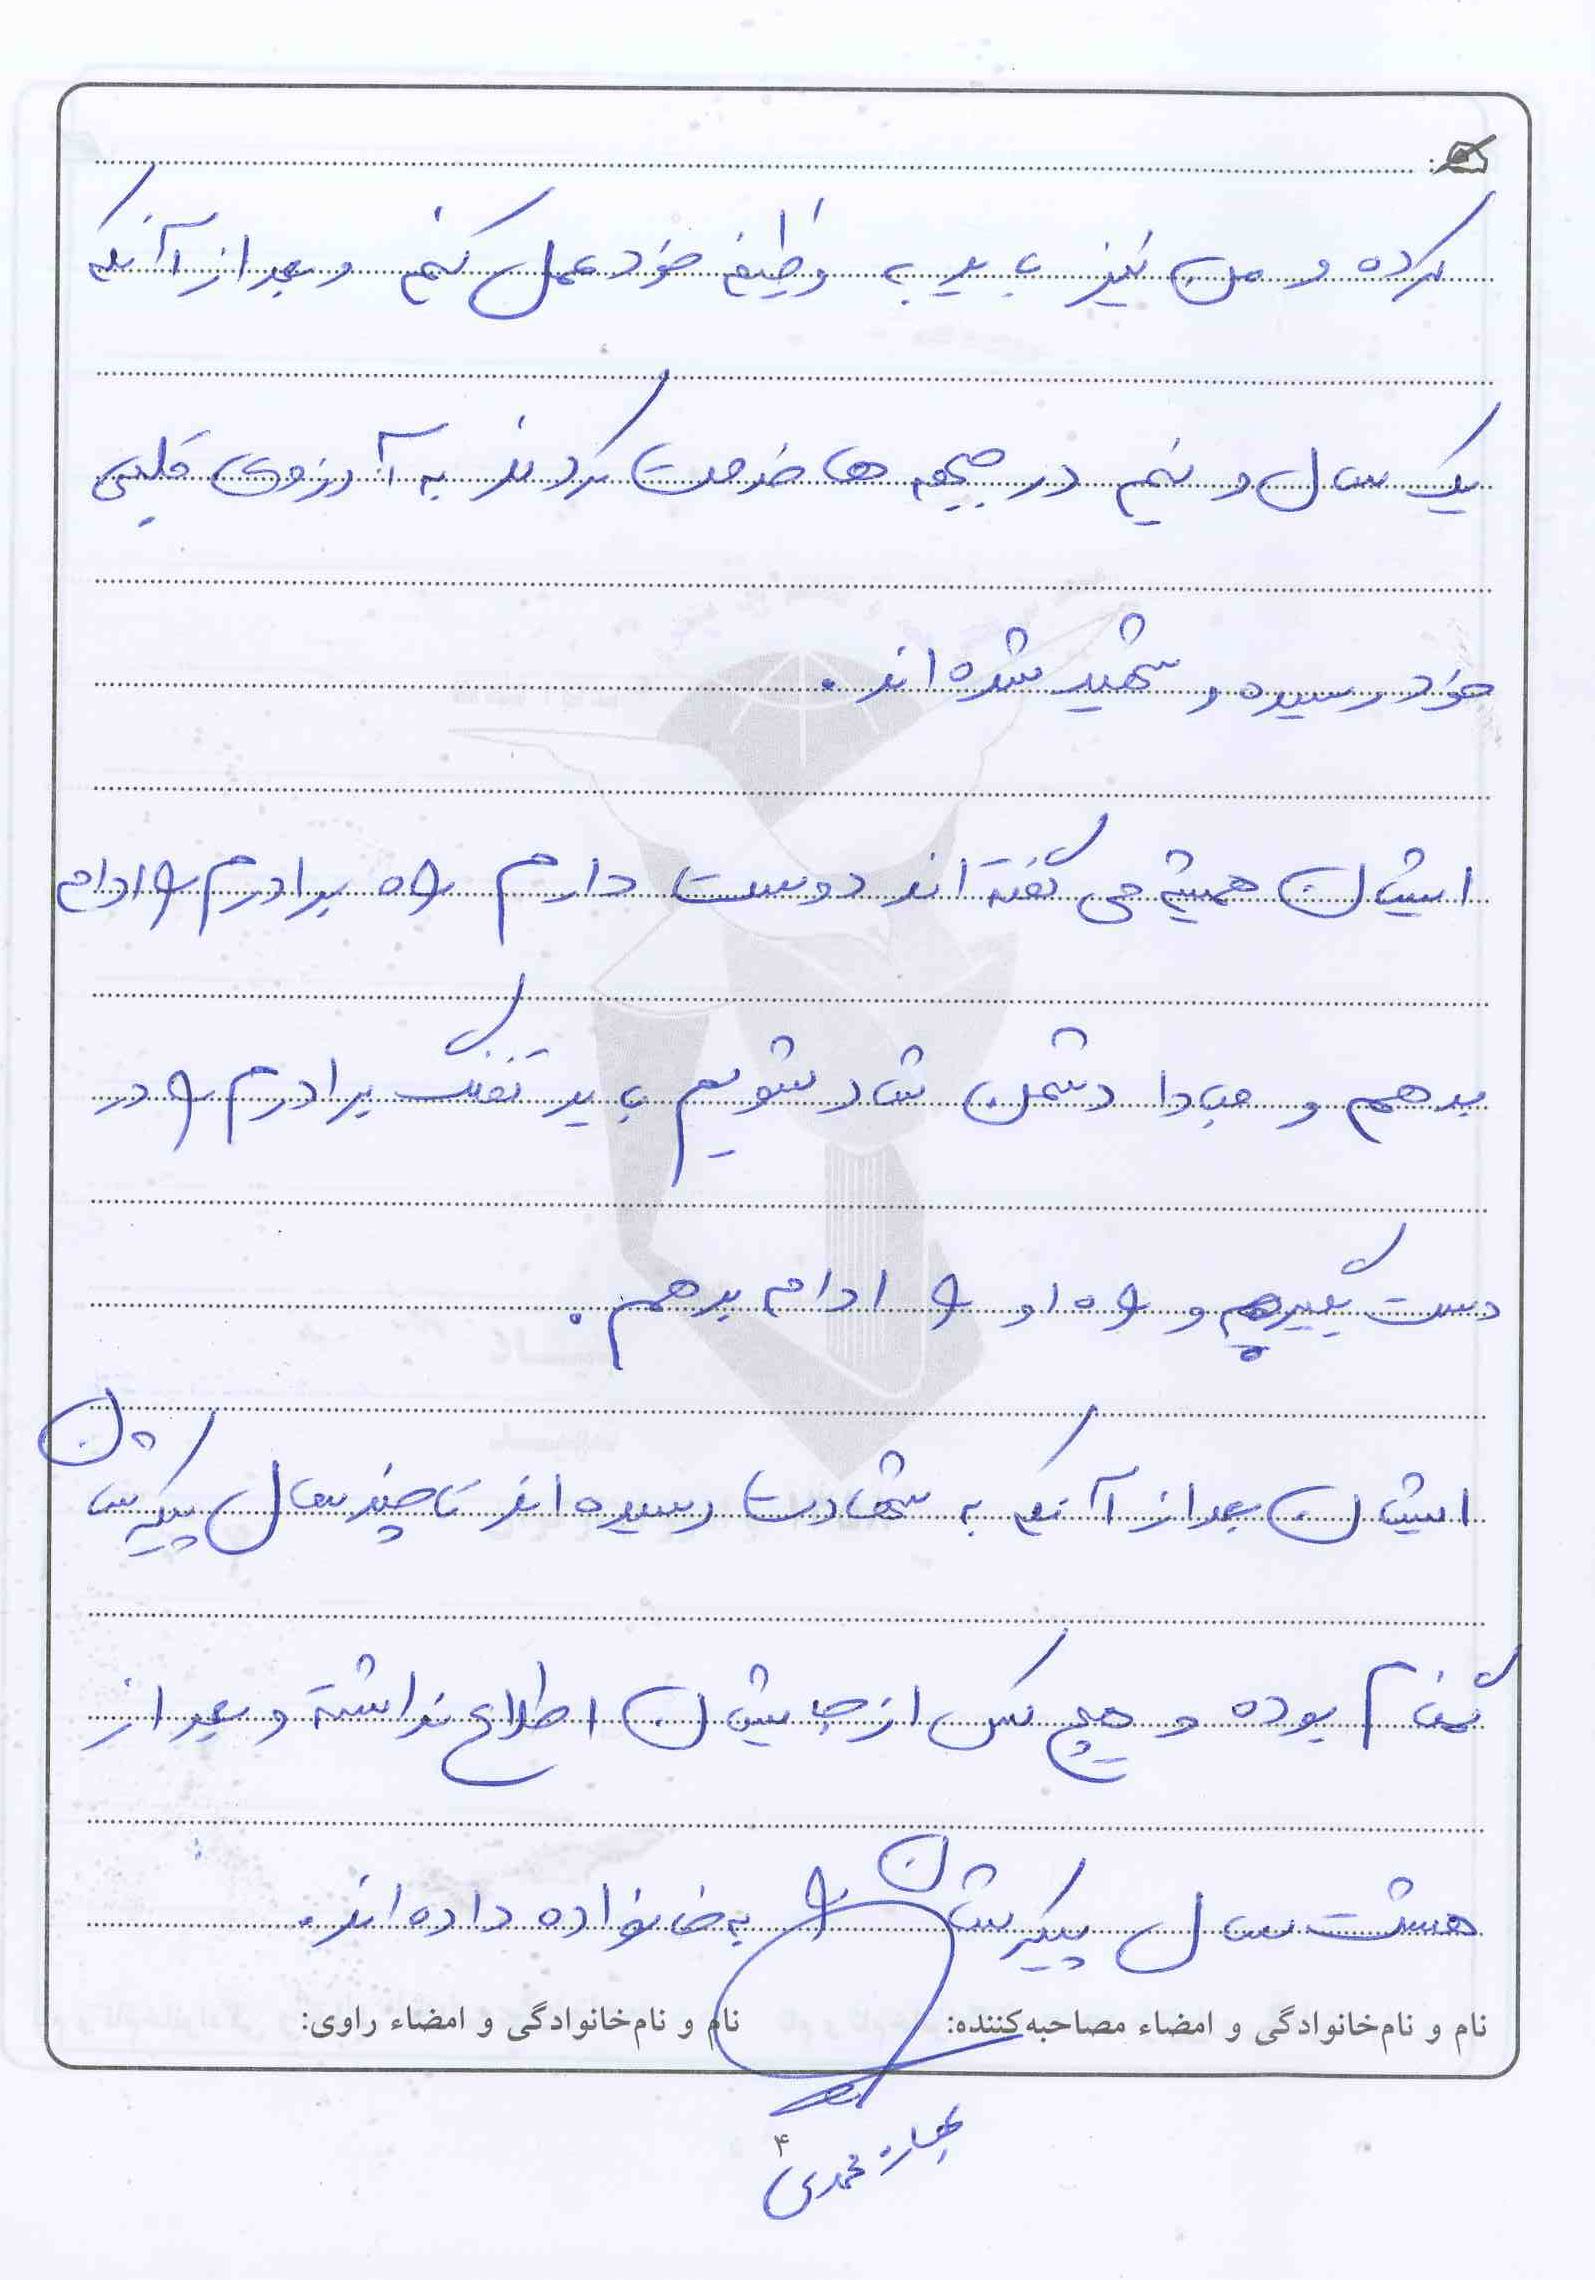 کرده و من نیز باید به وظیفه خود عمل کنم و بعد از آنکه
یک سال و نیم در جبهه ها خدمت کردند به آرزوی قلبی
خود رسیده و شهید شده اند.
ایشان همیشه می گفته اند دوست دارم راه برادرم را ادامه
بدهم و مبادا دشمن شاد شویم باید تفنگ برادرم را در
دست بگیرم و راه او را ادامه بدهم.
ایشان بعد از آنکه به شهادت رسیده اند تا چند سال پیکرشان
گمنام بوده و هیچ کس از جایشان اطلاع نداشته و بعد از
هشت سال پیکرشان را به خانواده داده اند.
نام و نام‌خانوادگی و امضاء مصاحبه‌کننده: نام و نام‌خانوادگی و امضاء راوی:
محمدی
۴